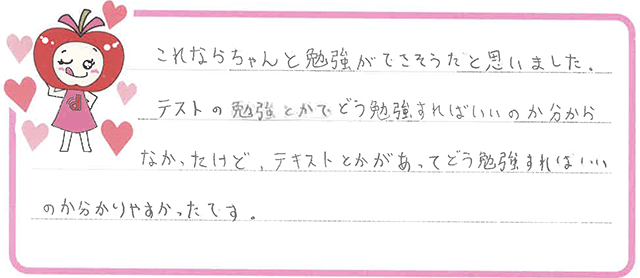 これならちゃんと勉強ができそうだと思いました。
テストの勉強とかでどう勉強すればいいのか分から
なかったけど、テキストとかがあってどう勉強すればいい
のか分かりやすかったです。